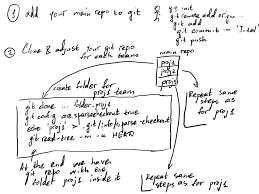 ① add your main repo to git
git init
git remote add origin ...
git add
git commit -m "Initial"
git push
② Clone & adjust your git repo
for each team
main repo
proj1
proj2
proj3
create folder for
proj1 team
git clone ... folder-proj1
git config core.sparsecheckout true
echo 'proj1' > .git/info/sparse-checkout
git read-tree -m -u HEAD
At the end we have
git repo with one
folder proj1 inside it
Repeat same
steps as for proj1
Repeat same
steps as
for proj1